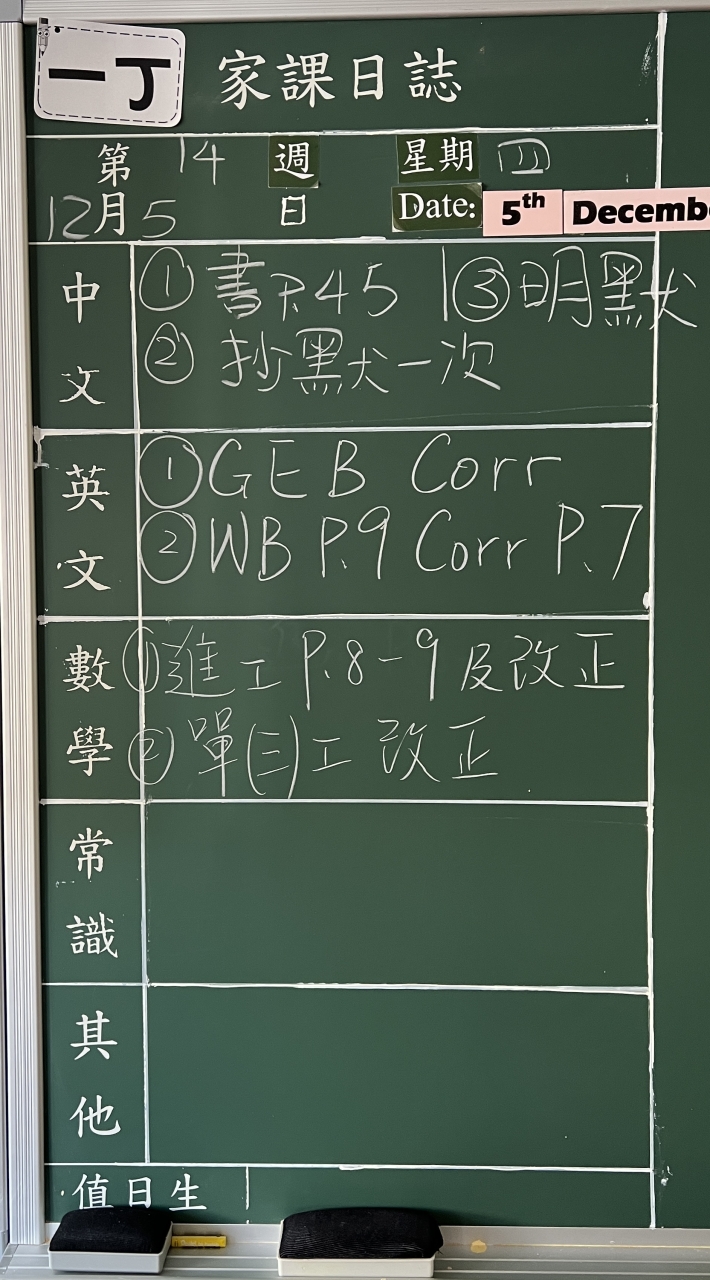 一丁 家課日誌
第 14 週 星期 四
12月5日 Date: 5th Decemb
中文 ① 書P.45 ③明默
② 抄默一次
英文 ① GEB Corr
② WB P.9 Corr P.7
數學 ① 進工 P.8-9 及改正
② 單(三)工 改正
常識
其他
值日生